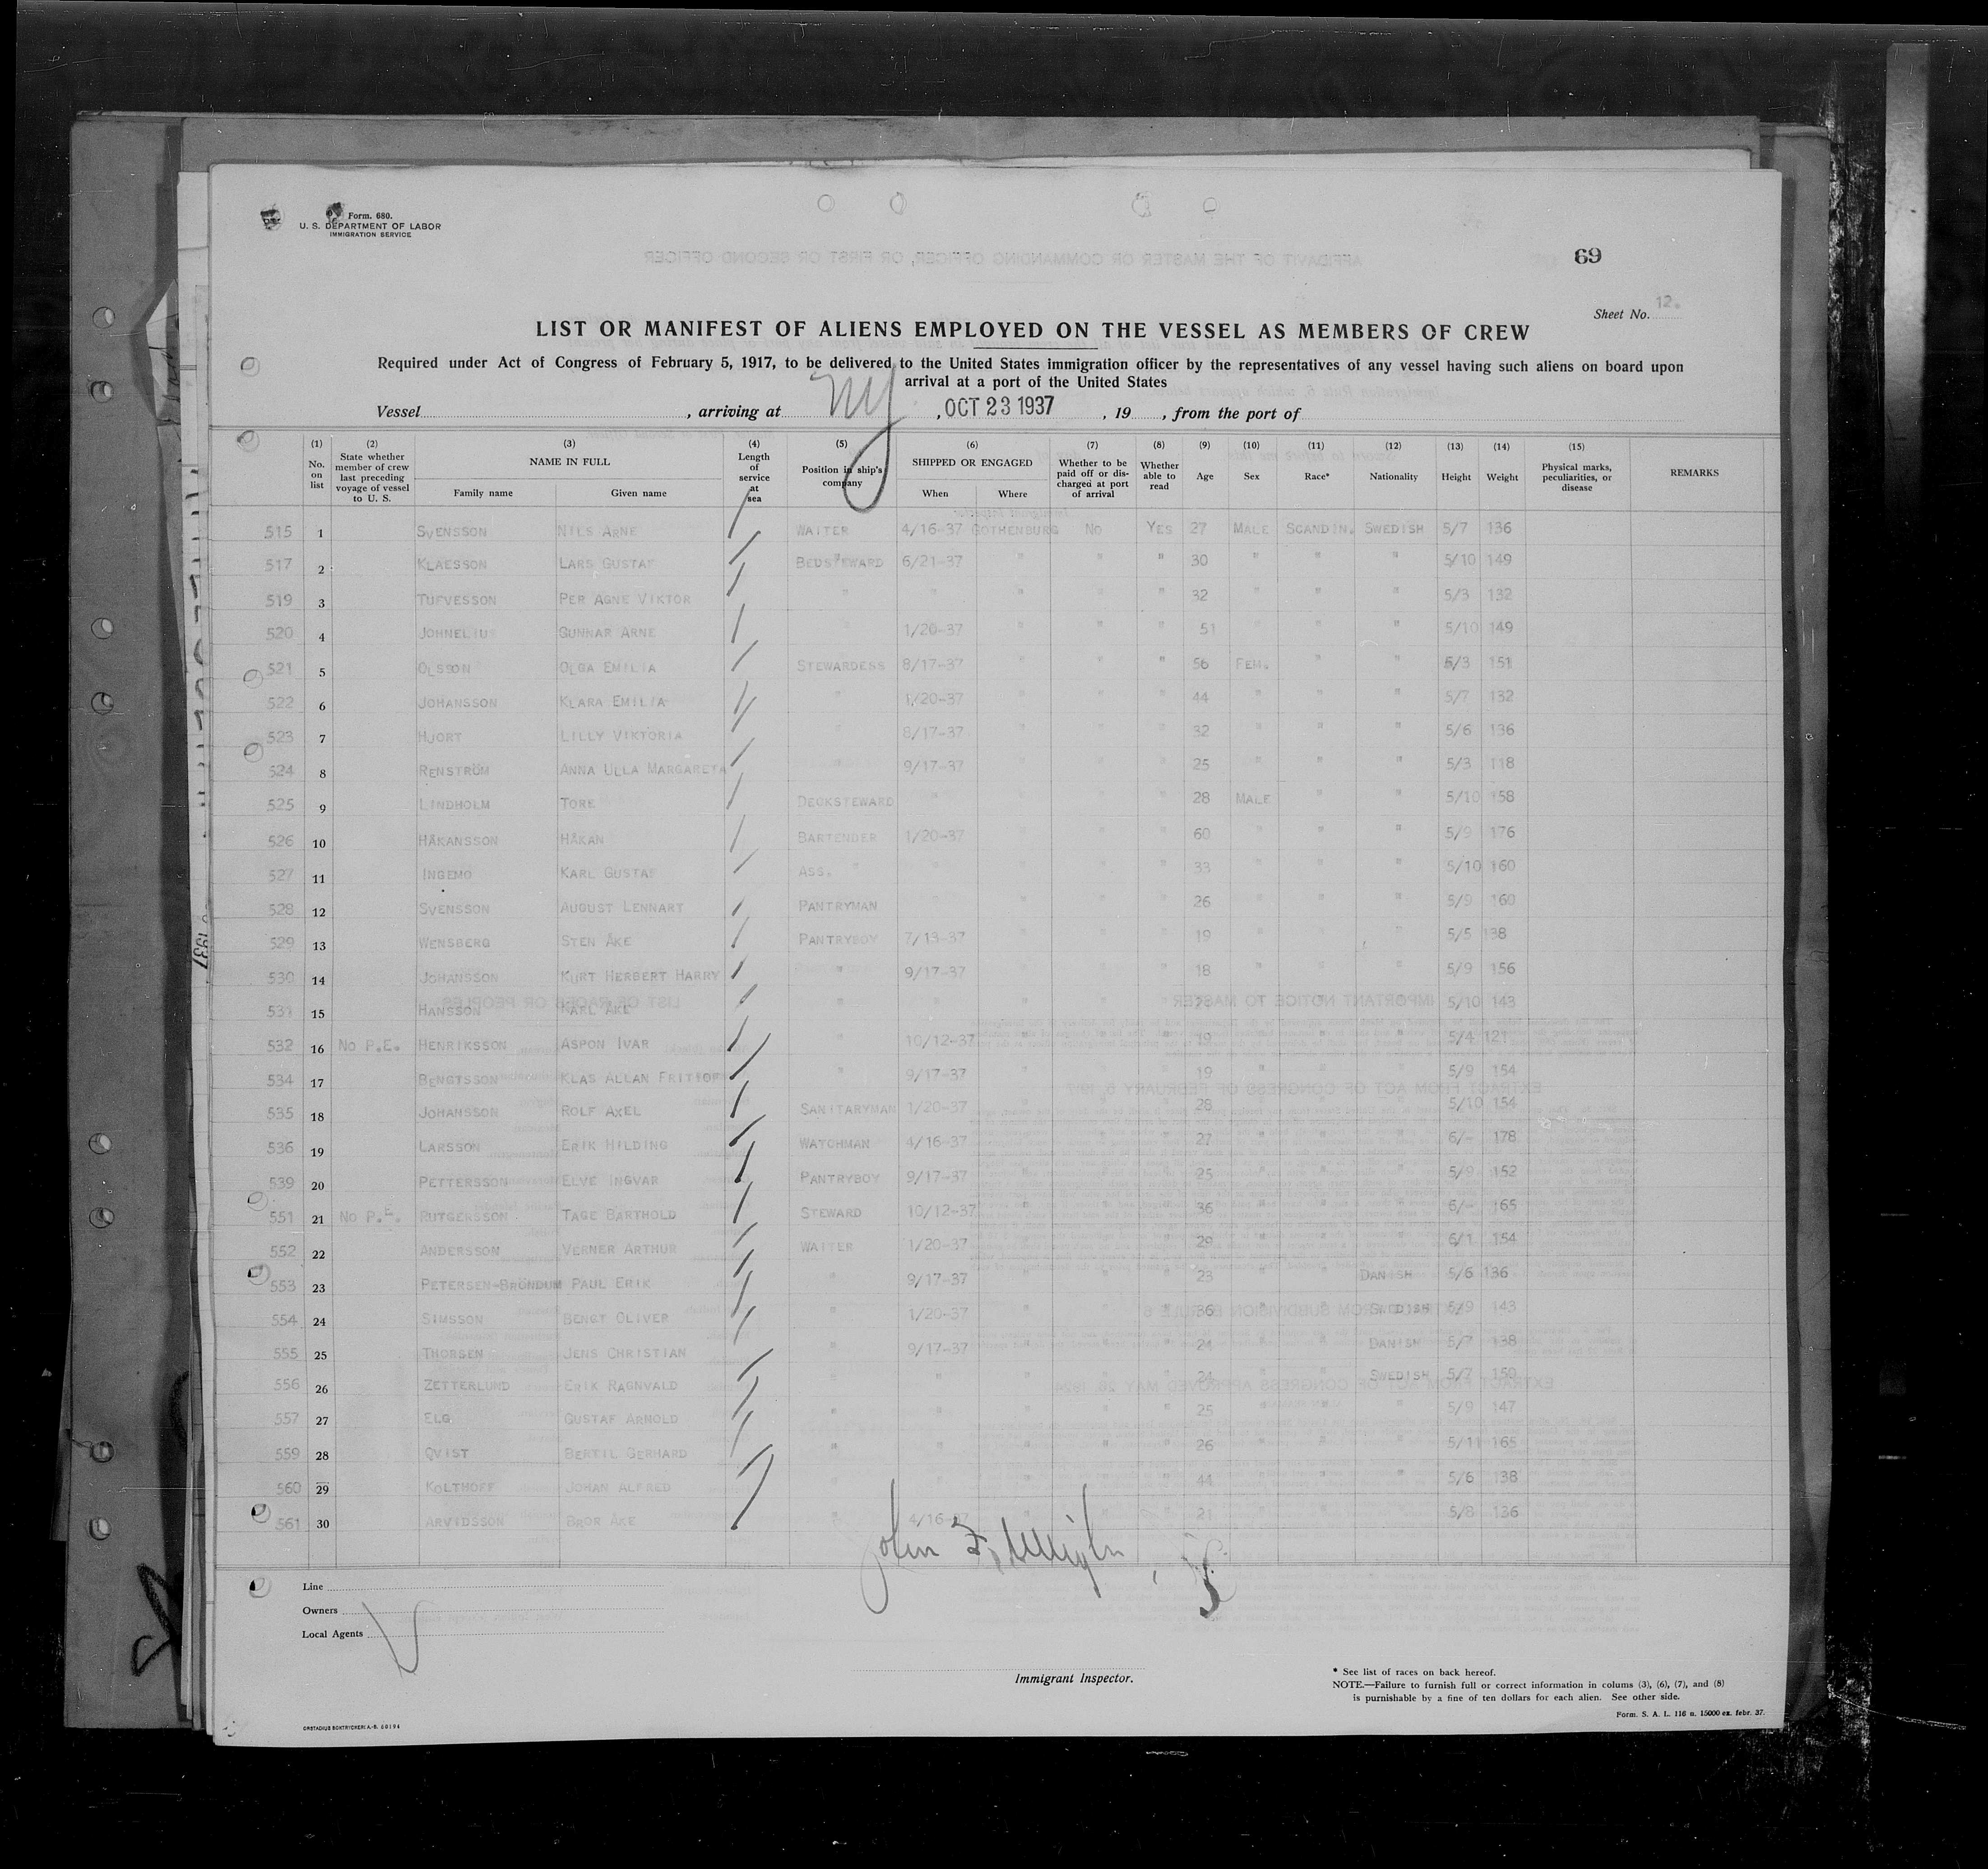 Form. 680.
U. S. DEPARTMENT OF LABOR
IMMIGRATION SERVICE
69
Sheet No. 12.
LIST OR MANIFEST OF ALIENS EMPLOYED ON THE VESSEL AS MEMBERS OF CREW
Required under Act of Congress of February 5, 1917, to be delivered to the United States immigration officer by the representatives of any vessel having such aliens on board upon
arrival at a port of the United States
Vessel , arriving at NY , OCT 23 1937 , 19 , from the port of
(1) No. on list (2) State whether member of crew last preceding voyage of vessel to U. S. (3) NAME IN FULL Family name Given name (4) Length of service at sea (5) Position in ship's company (6) SHIPPED OR ENGAGED When Where (7) Whether to be paid off or discharged at port of arrival (8) Whether able to read (9) Age (10) Sex (11) Race* (12) Nationality (13) Height (14) Weight (15) Physical marks, peculiarities, or disease REMARKS
515 1 SVENSSON NILS ARNE WAITER 4/16-37 GOTHENBURG NO YES 27 MALE SCANDIN. SWEDISH 5/7 136
517 2 KLAESSON LARS GUSTAF BEDSTEWARD 6/21-37 " " " 30 " " " 5/10 149
519 3 TUFVESSON PER AGNE VIKTOR " " " " " 32 " " " 5/3 132
520 4 JOHNELIUS GUNNAR ARNE " 1/20-37 " " " 51 " " " 5/10 149
521 5 OLSSON OLGA EMILIA STEWARDESS 8/17-37 " " " 56 FEM. " " 5/3 151
522 6 JOHANSSON KLARA EMILIA " 1/20-37 " " " 44 " " " 5/7 132
523 7 HJORT LILLY VIKTORIA " 8/17-37 " " " 32 " " " 5/6 136
524 8 RENSTRÖM ANNA ULLA MARGARETA " 9/17-37 " " " 25 " " " 5/3 118
525 9 LINDHOLM TORE DECKSTEWARD " " " " 28 MALE " " 5/10 158
526 10 HÅKANSSON HÅKAN BARTENDER 1/20-37 " " " 60 " " " 5/9 176
527 11 INGEMO KARL GUSTAF ASS. " " " " " 33 " " " 5/10 160
528 12 SVENSSON AUGUST LENNART PANTRYMAN " " " " 26 " " " 5/9 160
529 13 WENSBERG STEN ÅKE PANTRYBOY 7/13-37 " " " 19 " " " 5/5 138
530 14 JOHANSSON KURT HERBERT HARRY " 9/17-37 " " " 18 " " " 5/9 156
531 15 HANSSON KARL ÅKE " " " " " " " " 5/10 143
532 16 NO P.E. HENRIKSSON ASPON IVAR " 10/12-37 " " " 19 " " " 5/4 121
534 17 BENGTSSON KLAS ALLAN FRITIOF " 9/17-37 " " " 19 " " " 5/9 154
535 18 JOHANSSON ROLF AXEL SANITARYMAN 1/20-37 " " " 28 " " " 5/10 154
536 19 LARSSON ERIK HILDING WATCHMAN 4/16-37 " " " 27 " " " 6/- 178
539 20 PETTERSSON ELVE INGVAR PANTRYBOY 9/17-37 " " " 25 " " " 5/9 152
551 21 NO P.E. RUTGERSSON TAGE BARTHOLD STEWARD 10/12-37 " " " 36 " " " 6/- 165
552 22 ANDERSSON VERNER ARTHUR WAITER 1/20-37 " " " 29 " " " 6/1 154
553 23 PETERSEN-BRÖNDUM PAUL ERIK " 9/17-37 " " " 23 " " DANISH 5/6 136
554 24 SIMSSON BENGT OLIVER " 1/20-37 " " " 36 " " SWEDISH 5/9 143
555 25 THORSEN JENS CHRISTIAN " 9/17-37 " " " 24 " " DANISH 5/7 138
556 26 ZETTERLUND ERIK RAGNVALD " " " " " 24 " " SWEDISH 5/7 150
557 27 ELG GUSTAF ARNOLD " " " " " 25 " " " 5/9 147
559 28 QVIST BERTIL GERHARD " " " " " 26 " " " 5/11 165
560 29 KOLTHOFF JOHAN ALFRED " " " " " 44 " " " 5/6 138
561 30 ARVIDSSON BROR ÅKE " 4/16-37 " " " 21 " " " 5/8 136
Line
Owners
Local Agents
John F.
Immigrant Inspector.
* See list of races on back hereof.
NOTE.—Failure to furnish full or correct information in colums (3), (6), (7), and (8)
is punishable by a fine of ten dollars for each alien. See other side.
Form. S. A. L. 116 u. 15000 ex. febr. 37.